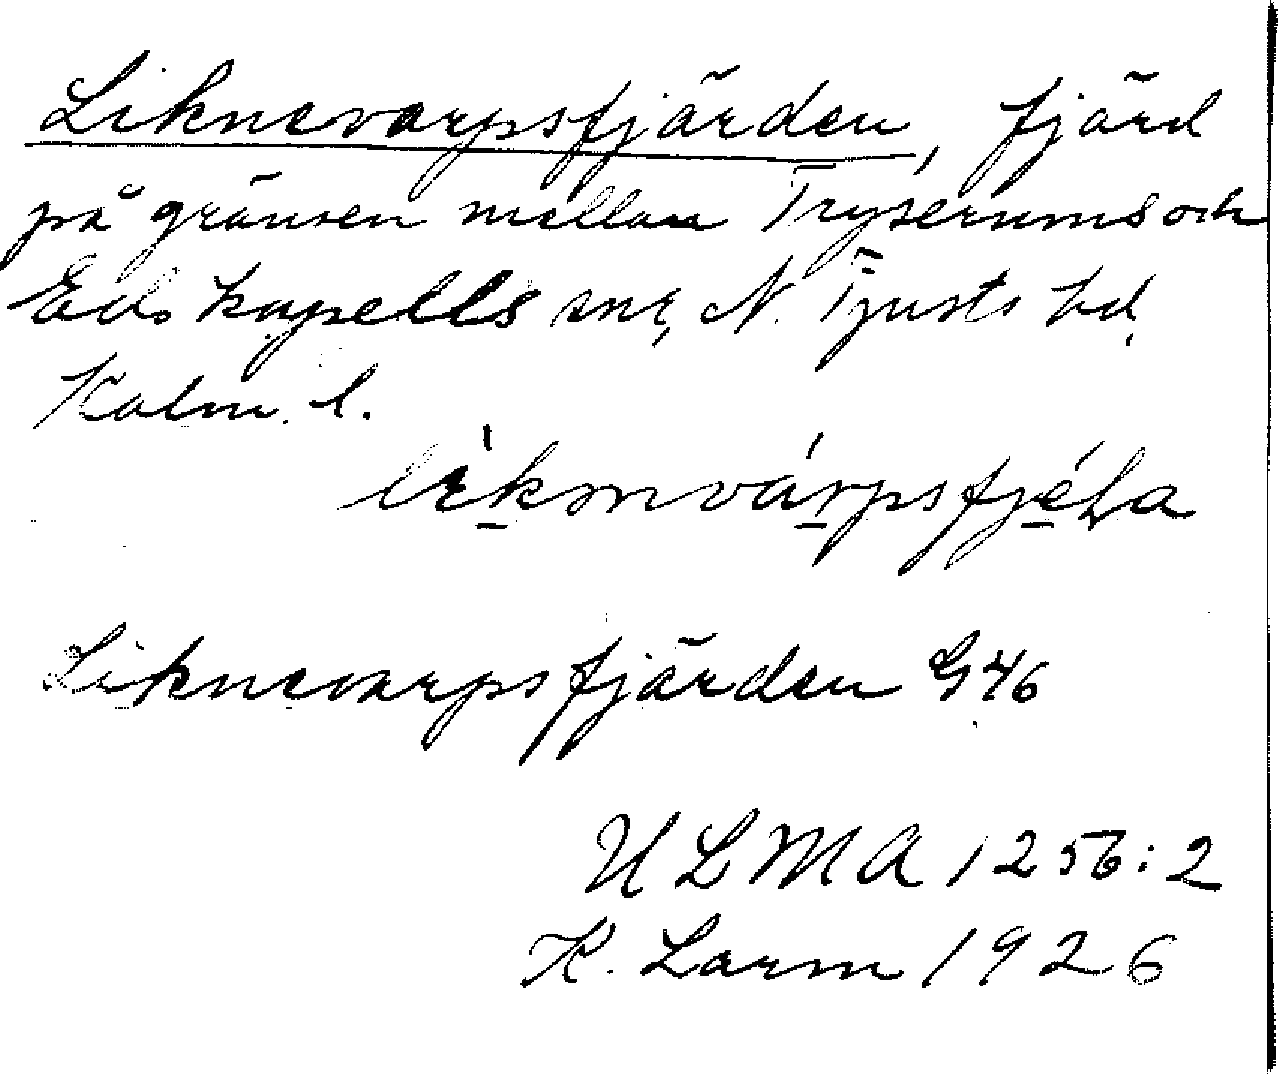 Liknevarpsfjärden, fjärd
på gränsen mellan Tryserums och
Eds kapells snr, N. Tjusts hd,
Kalm. l.
Liknevarpsfjärden G46
ULMA 1256:2
K. Larm 1926